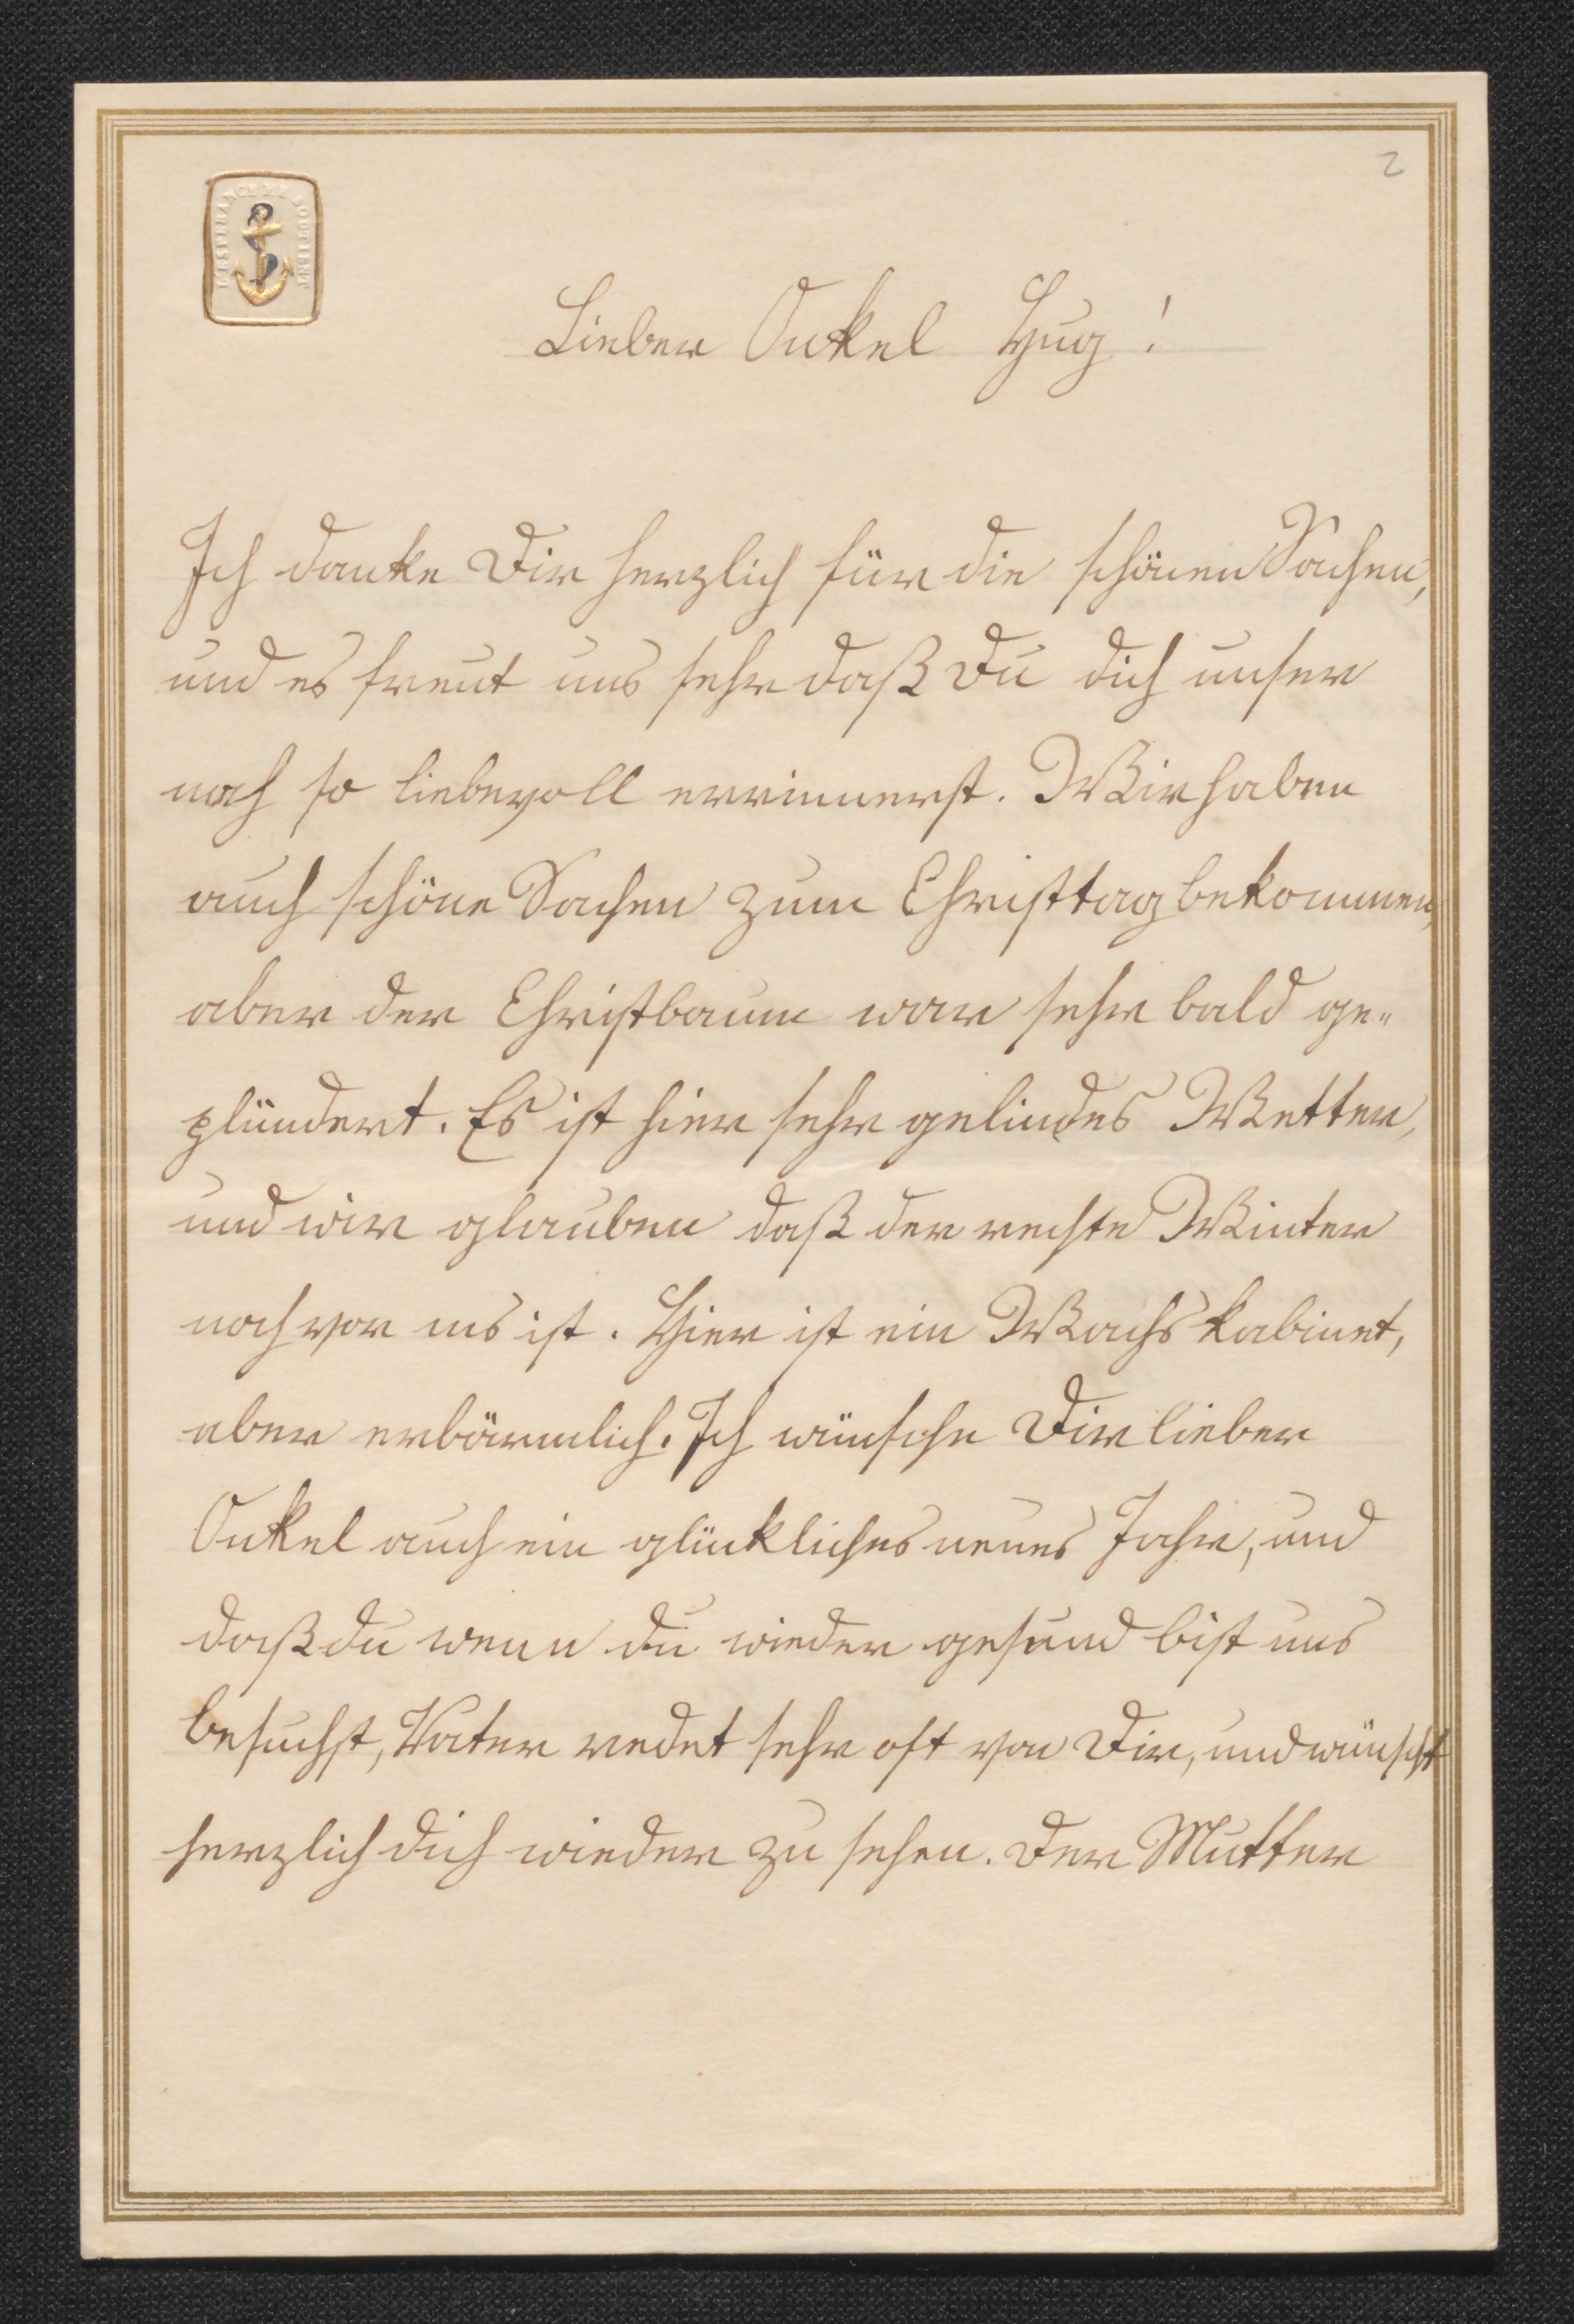 2
L'ESPERANCE ME SOUTIENT
Lieber Onkel Hug!
Ich danke Dir herzlich für die schönen Sachen,
und es freut uns sehr daß Du dich unser
noch so liebevoll errinnerst. Wir haben
auch schöne Sachen zum Christtag bekommen,
aber der Christbaum war sehr bald ge„
plündert. Es ist hier sehr gelindes Wetter,
und wir glauben daß der rechte Winter
noch vor uns ist. Hier ist ein Wachskabinet,
aber erbärmlich. Ich wünsche Dir lieber
Onkel auch ein glückliches neues Jahr, und
daß du wenn du wieder gesund bist uns
besuchst, Vater redet sehr oft von Dir, und wünscht
herzlich dich wieder zu sehen. Der Mutter